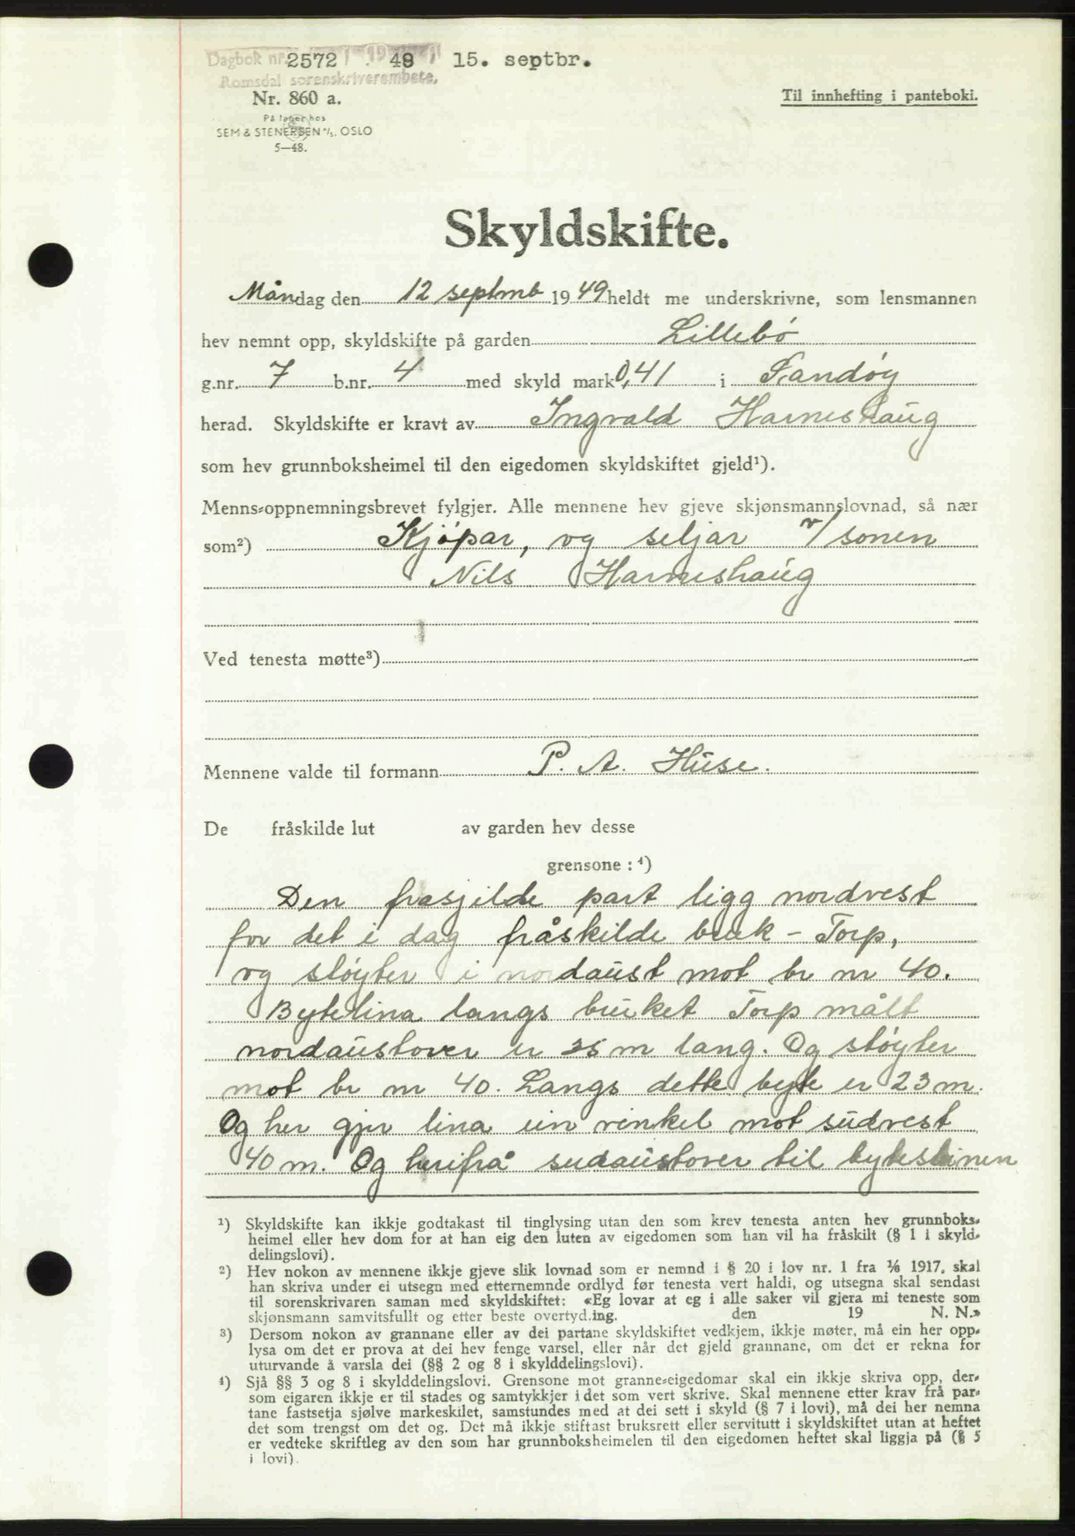 Dagbok nr. 2572 49 15. septbr.
Romsdal sorenskriverembete.
Nr. 860 a.
Til innhefting i panteboki.
På lager hos
SEM & STENERSEN A/S. OSLO
5—48.
Skyldskifte.
Måndag den 12 septmb 1949 heldt me underskrivne, som lensmannen
hev nemnt opp, skyldskifte på garden Lillebø
g.nr. 7 b.nr. 4 med skyld mark 0,41 i Sandøy
herad. Skyldskifte er kravt av Ingvald Harneshaug
som hev grunnboksheimel til den eigedomen skyldskiftet gjeld¹).
Menns-oppnemningsbrevet fylgjer. Alle mennene hev gjeve skjønsmannslovnad, så nær
som²) Kjøpar, og seljar v/sonen
Nils Harneshaug
Ved tenesta møtte³)
Mennene valde til formann P. A. Huse.
De fråskilde lut av garden hev desse
grensone: ⁴)
Den frasjilde part ligg nordvest
for det i dag fråskilde bruk - Torp,
og støyter i nordaust mot br nr 40.
Bytelina langs bruket Torp målt
nordaustover er 25 m lang. Og støyter
mot br nr 40. Langs dette byte er 23 m.
Og her gjer lina ein vinkel mot sudvest
40 m. Og herifrå sudaustover til byteslinen
¹) Skyldskifte kan ikkje godtakast til tinglysing utan den som krev tenesta anten hev grunnboks-
heimel eller hev dom for at han eig den luten av eigedomen som han vil ha fråskilt (§ 1 i skyld-
delingslovi).
²) Hev nokon av mennene ikkje gjeve slik lovnad som er nemnd i § 20 i lov nr. 1 fra 1/6 1917, skal
han skriva under ei utsegn med etternemnde ordlyd før tenesta vert haldi, og utsegna skal sendast
til sorenskrivaren saman med skyldskiftet: «Eg lovar at eg i alle saker vil gjera mi teneste som
skjønsmann samvitsfullt og etter beste overtyding. den 19 N. N.»
³) Dersom nokon av grannane eller av dei partane skyldskiftet vedkjem, ikkje møter, må ein her opp-
lysa om det er prova at dei hev fenge varsel, eller når det gjeld grannane, om det er rekna for
uturvande å varsla dei (§§ 2 og 8 i skylddelingslovi).
⁴) Sjå §§ 3 og 8 i skylddelingslovi. Grensone mot granne-eigedomar skal ein ikkje skriva opp, der-
som eigaren ikkje er til stades og samtykkjer i det som vert skrive. Skal mennene etter krav frå par-
tane fastsetja sjølve markeskilet, samstundes med at dei sett i skyld (§ 7 i lovi), må dei her nemna
det som trengst om det og. Det må ikkje stiftast bruksrett eller servitutt i skyldskiftet utan at heftet
er vedteke skriftleg av den som har grunnboksheimelen til den eigedomen heftet skal liggja på (§ 5
i lovi).